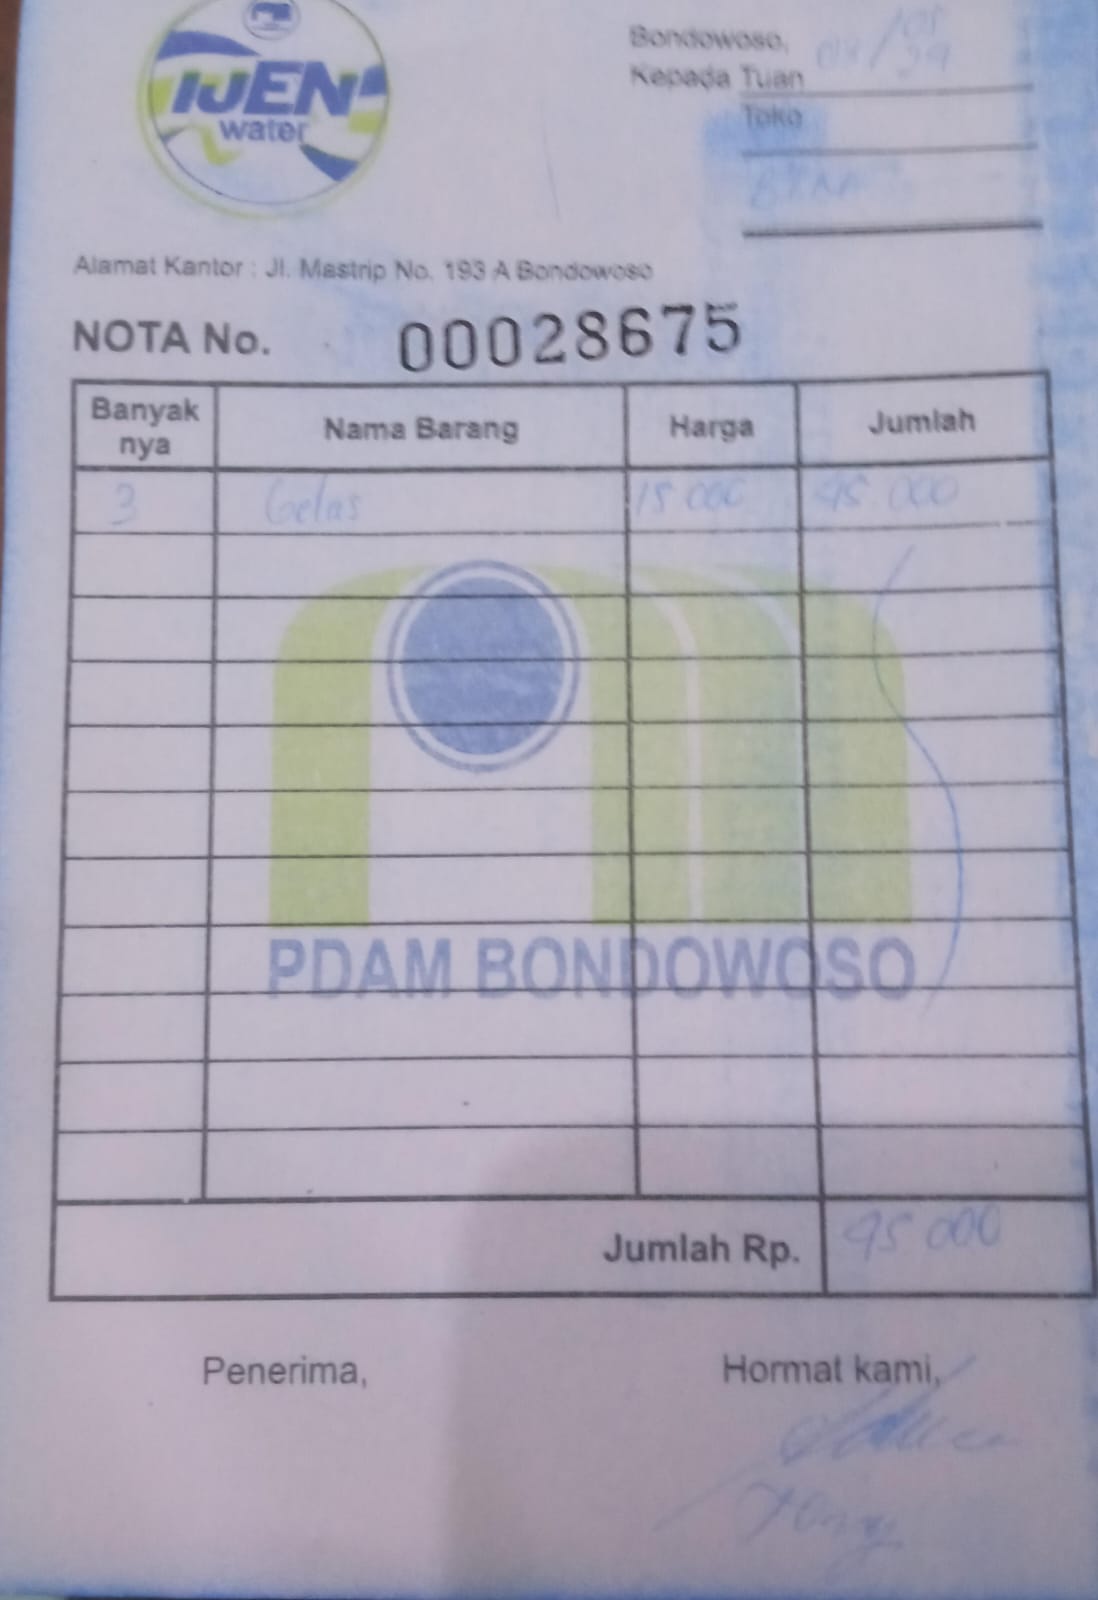 IJEN
water
Bondowoso, 08/05
Kepada Tuan
Toko
Alamat Kantor : Jl. Mastrip No. 193 A Bondowoso
NOTA No. 00028675
Banyak nya Nama Barang Harga Jumlah
3 Gelas 15 000 45.000
PDAM BONDOWOSO
Jumlah Rp. 45 000
Penerima, Hormat kami,